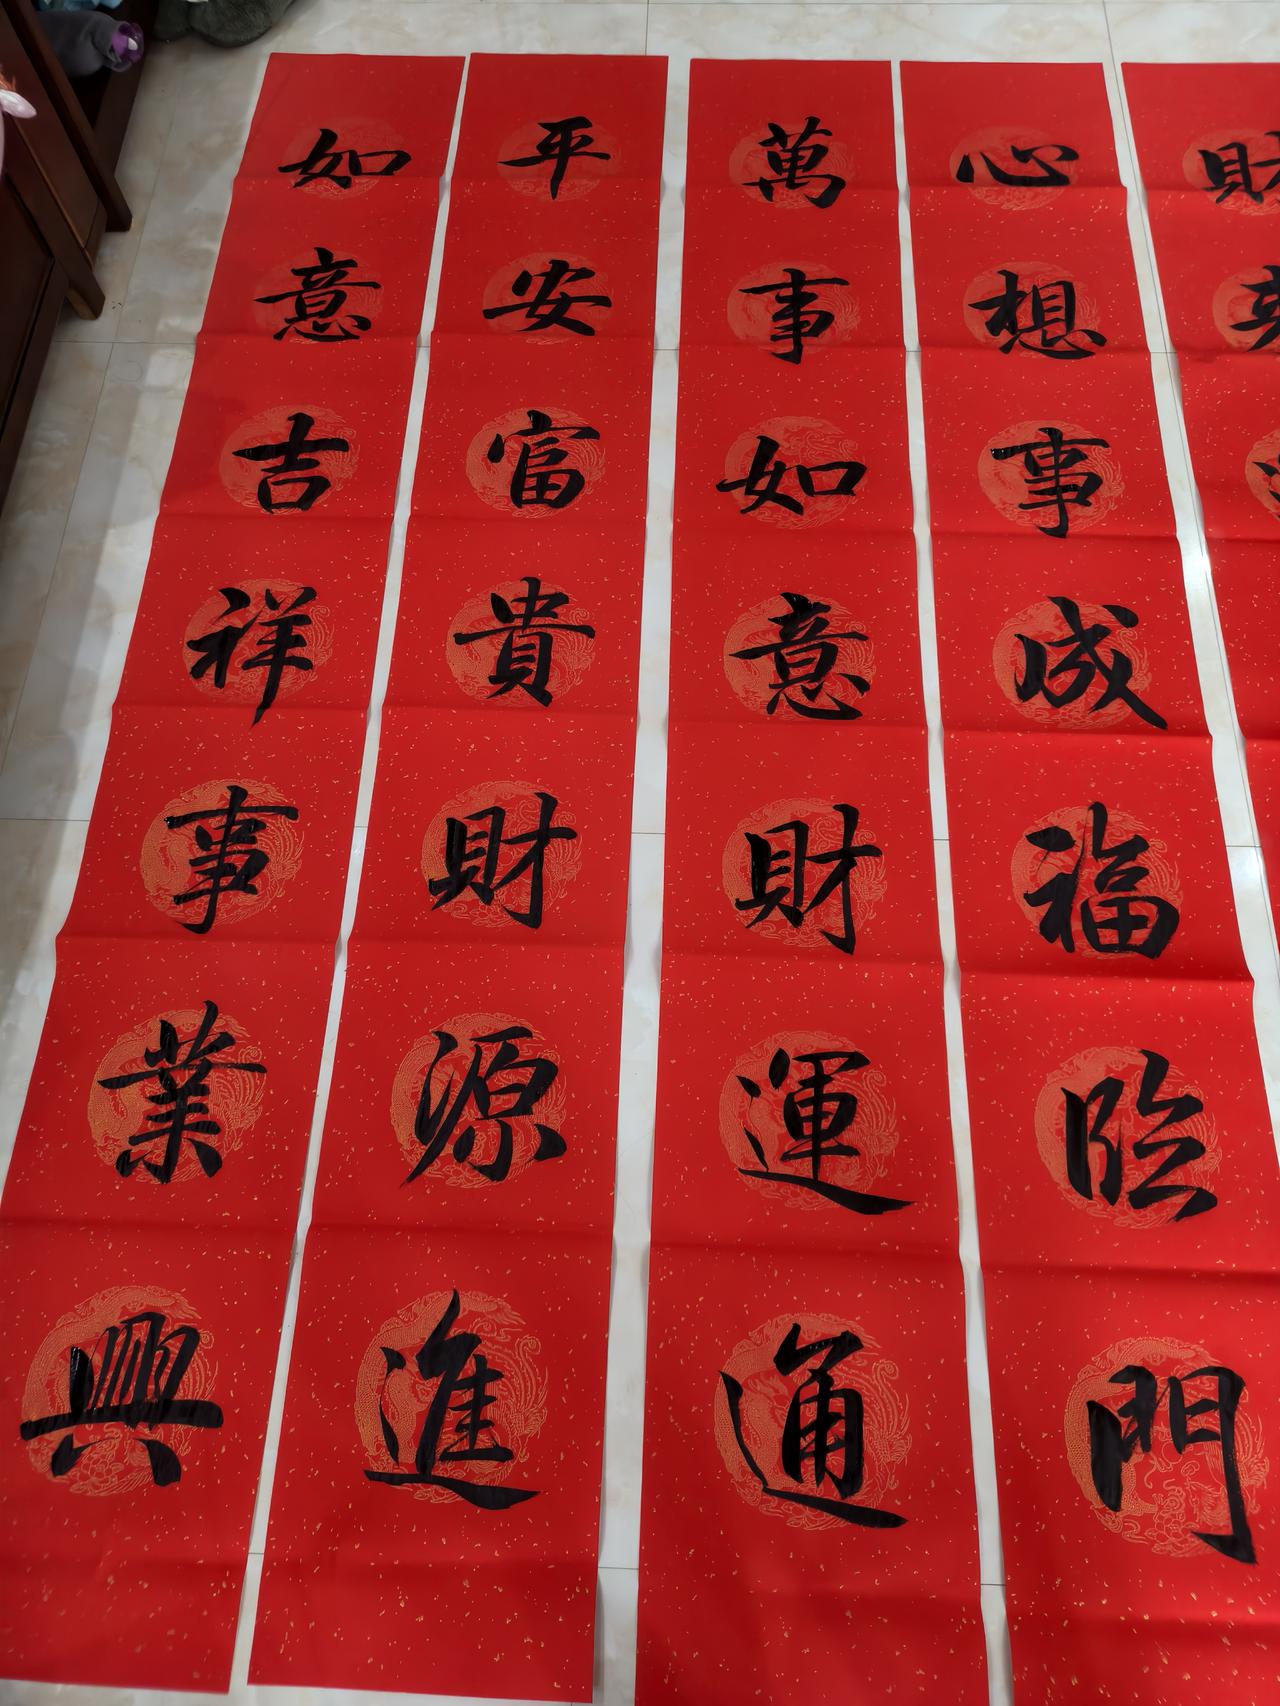 財
心想事成福臨門
萬事如意財運通
平安富貴財源進
如意吉祥事業興